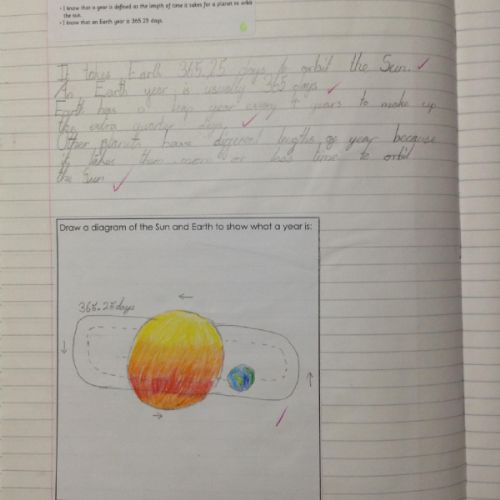 • I know that a year is defined as the length of time it takes for a planet to orbit
the sun.
• I know that an Earth year is 365.25 days.
It takes Earth 365.25 days to orbit the Sun.
An Earth year is usually 365 days.
Earth has a leap year every 4 years to make up
the extra quarter days.
Other planets have different lengths of year because
it takes them more or less time to orbit
the Sun
Draw a diagram of the Sun and Earth to show what a year is:
365.25 days